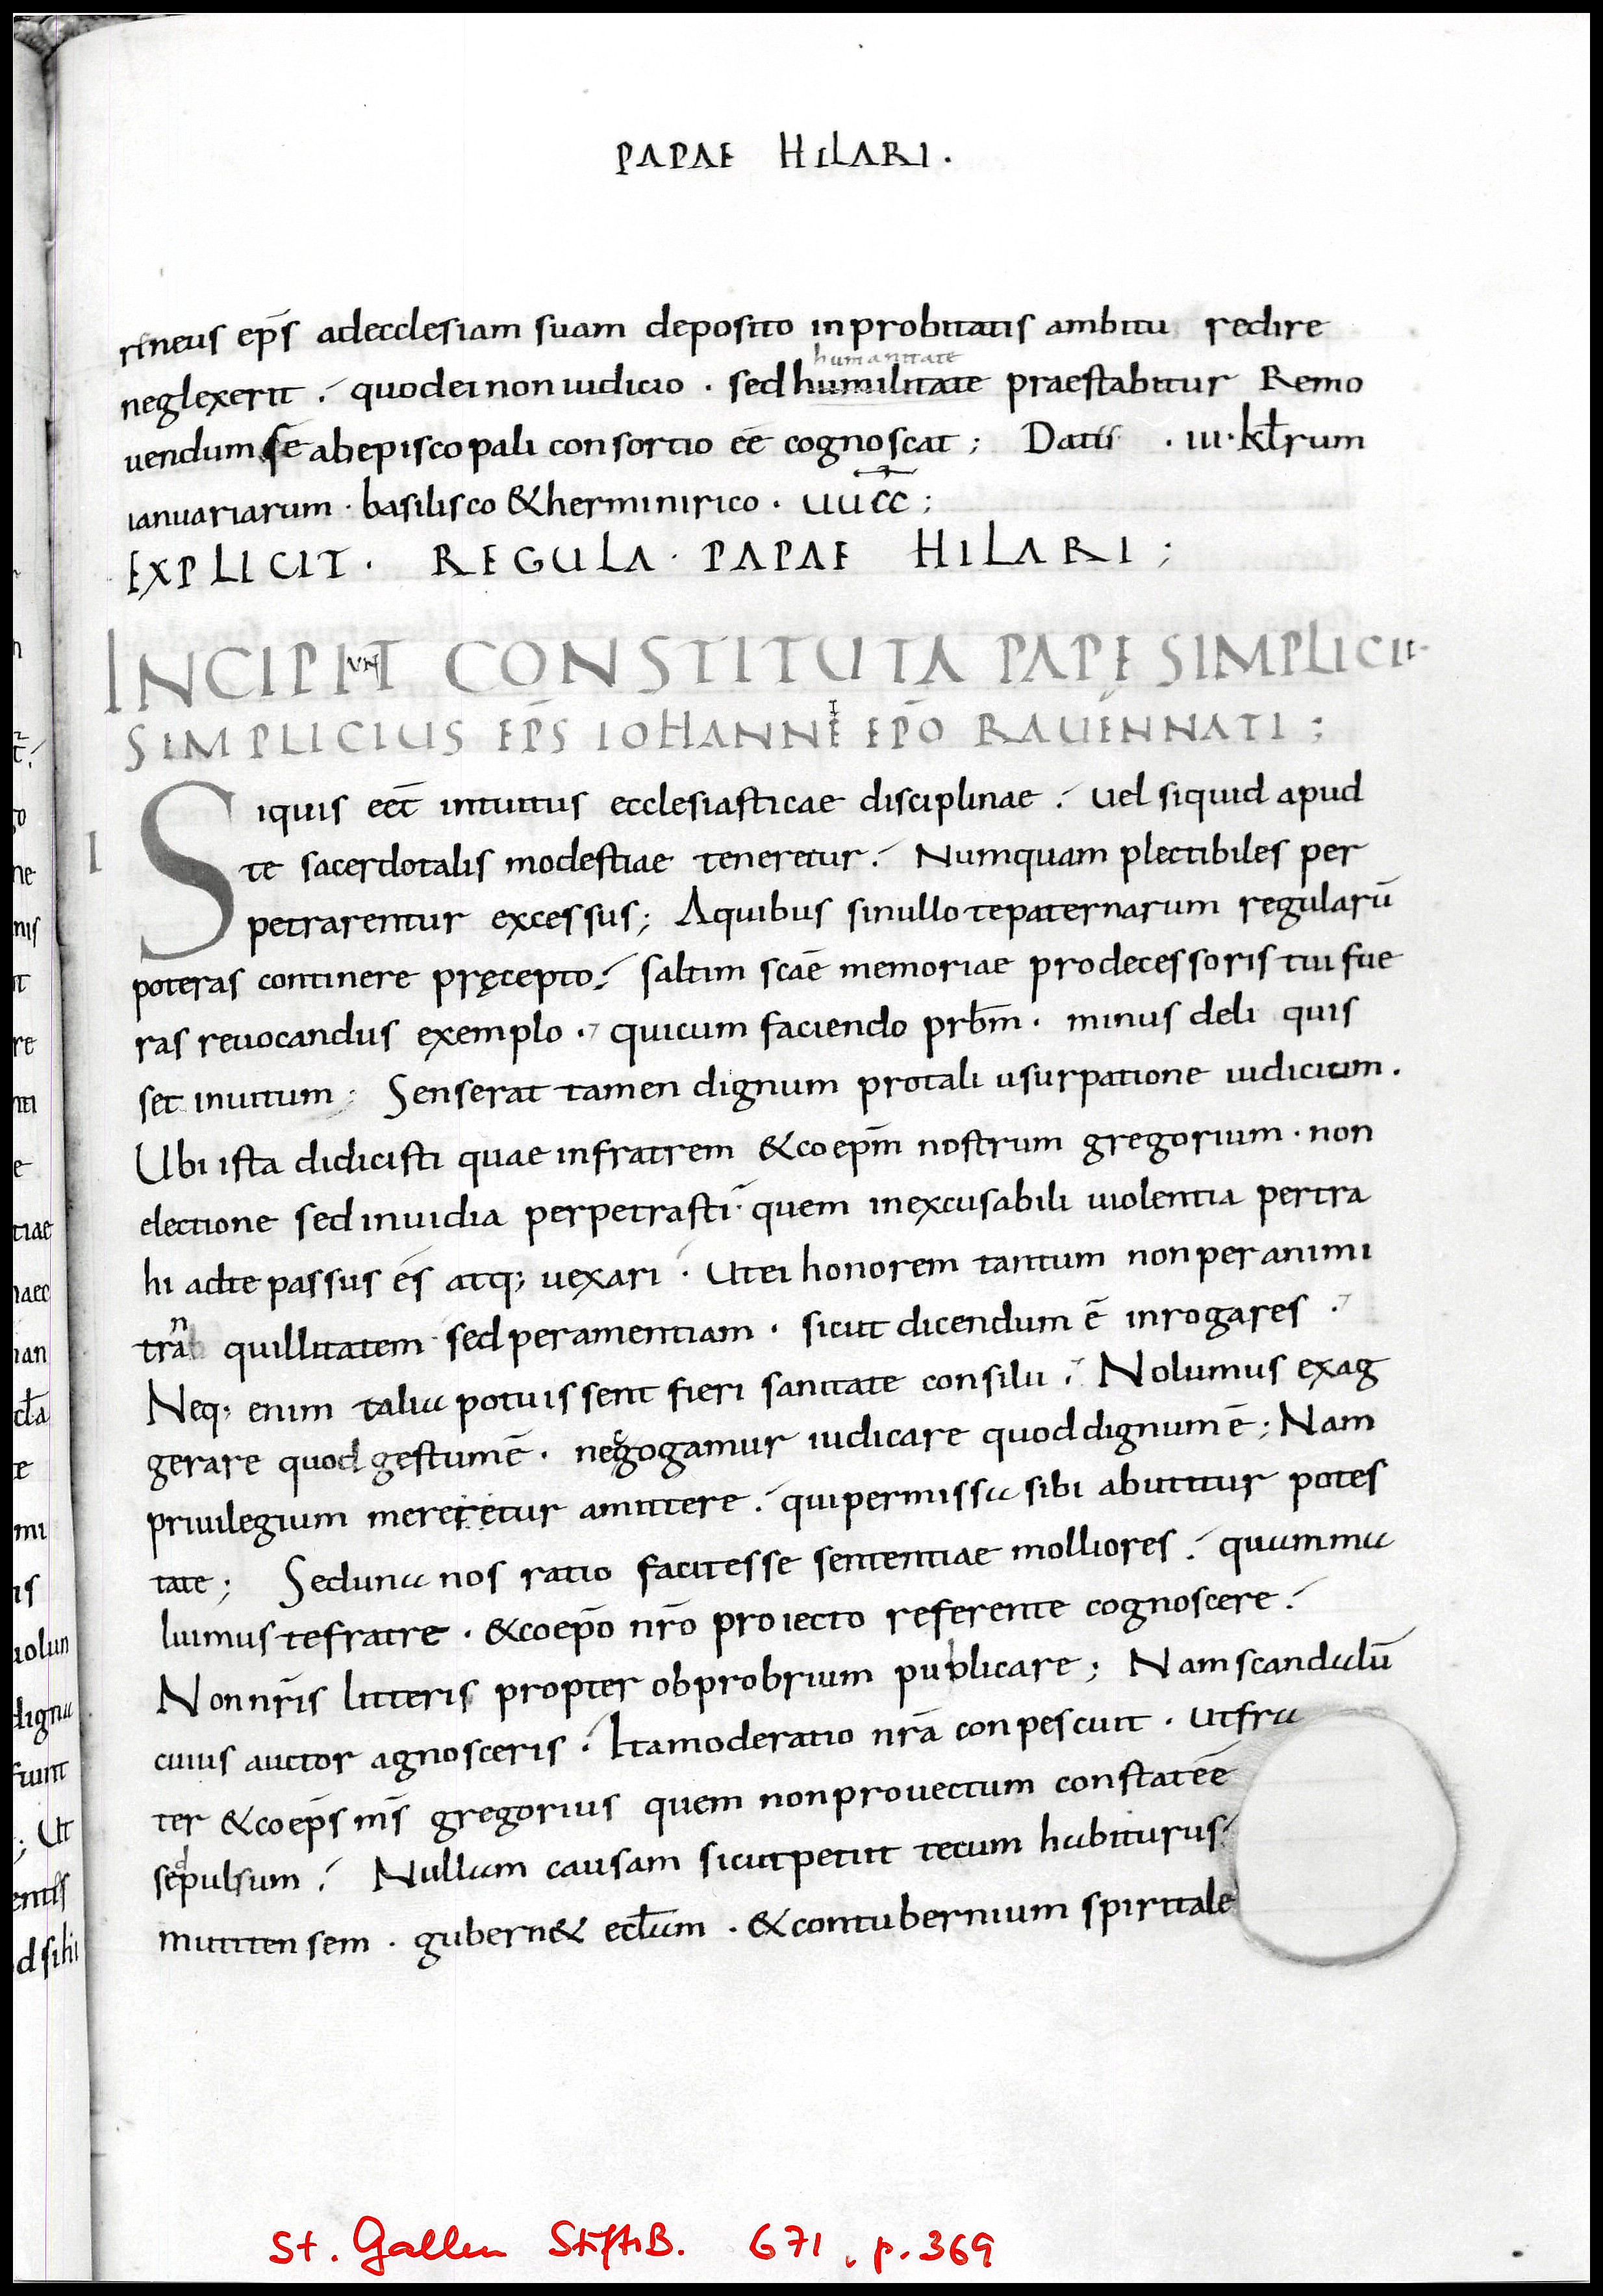 PAPAE HILARI.
rineus ep̄s adecclesiam suam deposito inprobitatis ambitu redire
humanitate
neglexerit. quodei non iudicio · sed humilitate praestabitur Remo
uendum se abepiscopali consortio eē cognoscat; Datū · iii · kl̄rum
ianuariarum · basilisco & herminirico · uuc̄c̄;
EXPLICIT. REGULA · PAPAE HILARI;
INCIPIUNT CONSTITUTA PAPĘ SIMPLICII ·
SIMPLICIUS EP̄S IOHANNI EP̄O RAUENNATI;
I
Siquis eēt intuitus ecclesiasticae disciplinae. uel siquid apud
te sacerdotalis modestiae teneretur. Numquam plectibiles per
petrarentur excessus; Aquibus sinullo tepaternarum regularū
poteras continere pręcepto. saltim scāe memoriae prodecessoris tui fue
ras reuocandus exemplo. quicum faciendo prb̄m. minus deli quis
set inuitum; Senserat tamen dignum protali usurpatione iudicium.
Ubi ista didicisti quae infratrem & coepm̄ nostrum gregorium · non
electione sed inuidia perpetrasti · quem inexcusabili uiolentia pertra
hi adte passus és atq; uexari · Utei honorem tantum non per animi
tran quillitatem sed peramentiam · sicut dicendum ē inrogares ·
Neq; enim talia potuissent fieri sanitate consilii. Nolumus exag
gerare quod gestum ē · necogamur iudicare quod dignum ē; Nam
priuilegium meretetur amittere. qui permissa sibi abutitur potes
tate; Sed una nos ratio facit esse sententiae molliores. quam ma
luimus te fratre · & coep̄o nr̄o proiecto referente cognoscere.
Non nr̄is litteris propter obprobrium publicare; Nam scandalū
cuius auctor agnosceris. Ita moderatio nr̄a conpescuit · ut fra
ter & coep̄s nr̄s gregorius quem non prouectum constat eē
sed pulsum. Nullam causam sicut petiit tecum habiturus.
mutinensem · gubern& ecl̄am · & contubernium spiritale
St. Gallen StiftsB. 671, p. 369